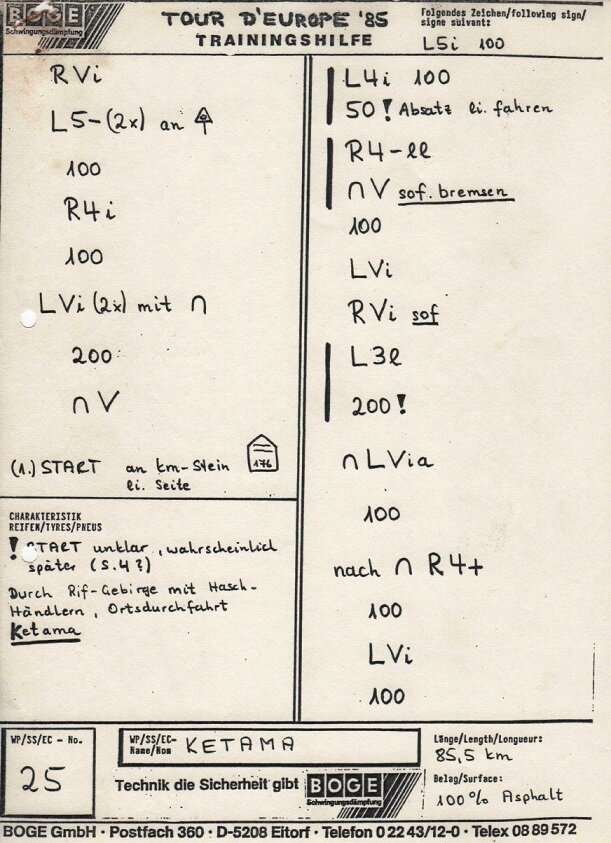 BOGE
Schwingungsdämpfung
TOUR D'EUROPE '85
TRAININGSHILFE
Folgendes Zeichen/following sign/
signe suivant:
L5i 100
RVi
L5-(2x) an
100
R4i
100
LVi (2x) mit ∩
200
∩ V
(1.) START an km-Stein 176
li. Seite
CHARAKTERISTIK
REIFEN/TYRES/PNEUS
! START unklar, wahrscheinlich
später (S.4?)
Durch Rif-Gebirge mit Hasch-
Händlern, Ortsdurchfahrt
Ketama
L4i 100
50! Absatz li. fahren
R4-ll
∩V sof. bremsen
100
LVi
RVi sof
L3l
200!
∩ LVia
100
nach ∩ R4+
100
LVi
100
WP/SS/EC - No.
25
WP/SS/EC-
Name/Nom
KETAMA
Technik die Sicherheit gibt
BOGE
Schwingungsdämpfung
Länge/Length/Longueur:
85,5 km
Belag/Surface:
100% Asphalt
BOGE GmbH · Postfach 360 · D-5208 Eitorf · Telefon 0 22 43/12-0 · Telex 08 89 572